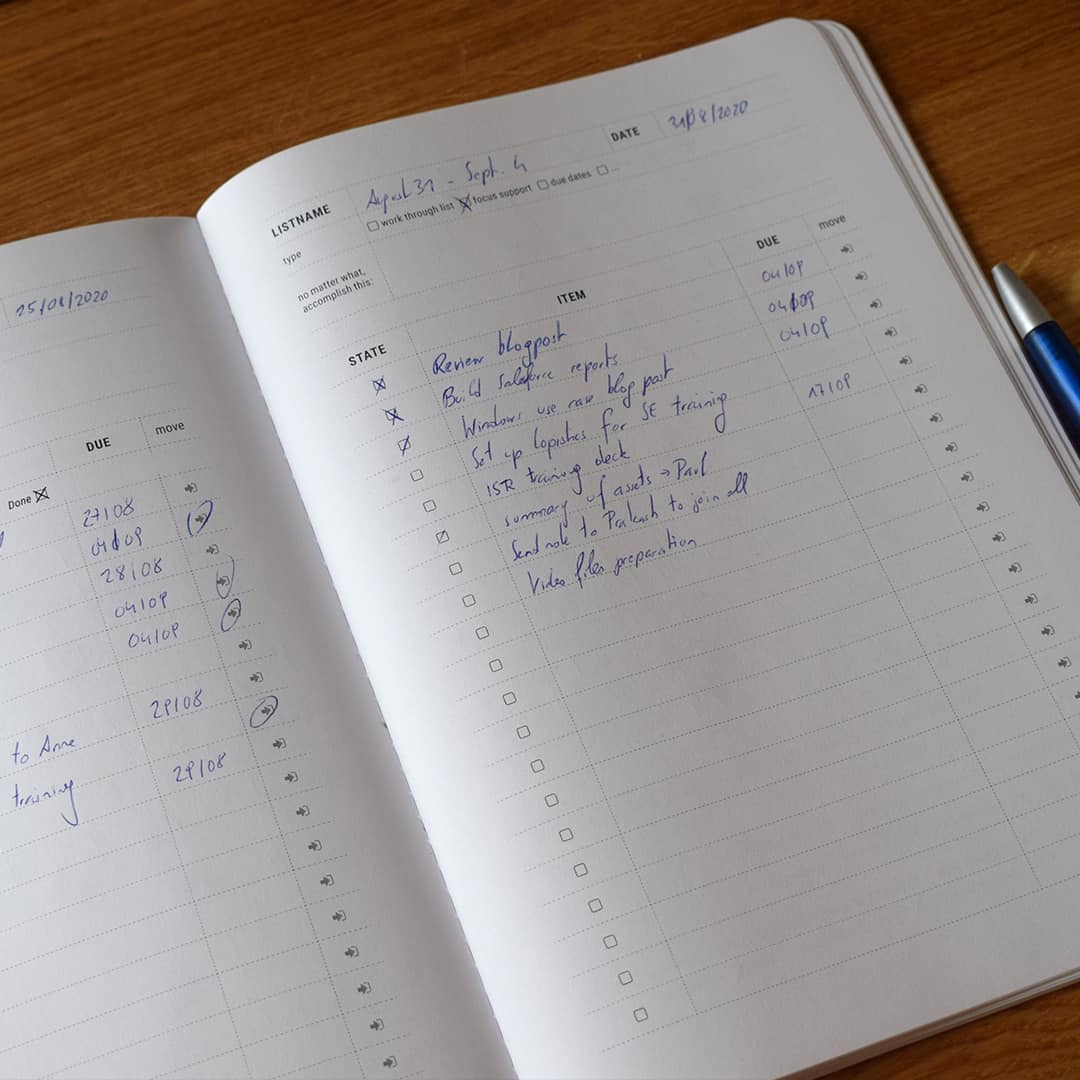 25/08/2020
DUE
move
Done
27/08
04/09
28/08
04/09
04/09
29/08
to Anne
29/08
training
LISTNAME
August 31 - Sept. 4
DATE
31/08/2020
type
work through list
focus support
due dates
...
no matter what,
accomplish this:
STATE
ITEM
DUE
move
Review blogpost
04/09
Build Saleforce reports
04/09
Windows use case blog post
04/09
Set up logistics for SE training
ISR training deck
17/09
summary of assets → Paul
Send note to Prakash to join all
Video files preparation